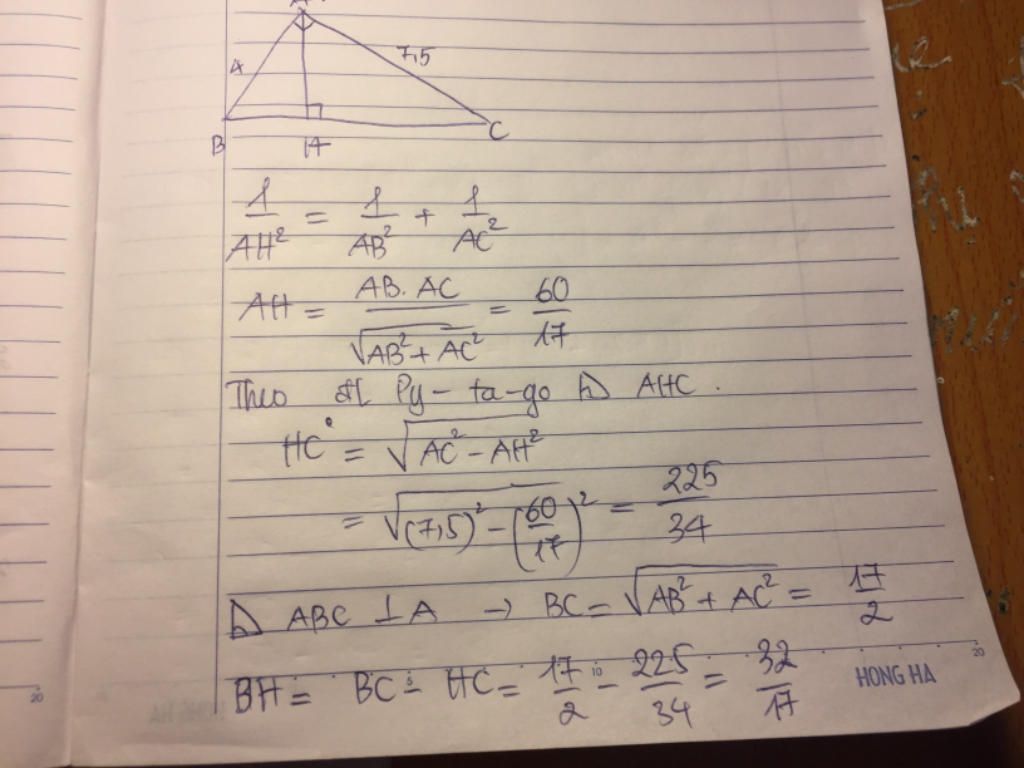 A
4
7,5
B H C
1/AH² = 1/AB² + 1/AC²
AH = AB.AC/√(AB²+AC²) = 60/17
Theo đl Py-ta-go AHC.
HC = √(AC²-AH²)
= √((7,5)²-(60/17)²) = 225/34
ABC ⊥A → BC = √(AB²+AC²) = 17/2
BH = BC - HC = 17/2 - 225/34 = 32/17
HONG HA
20
10
20